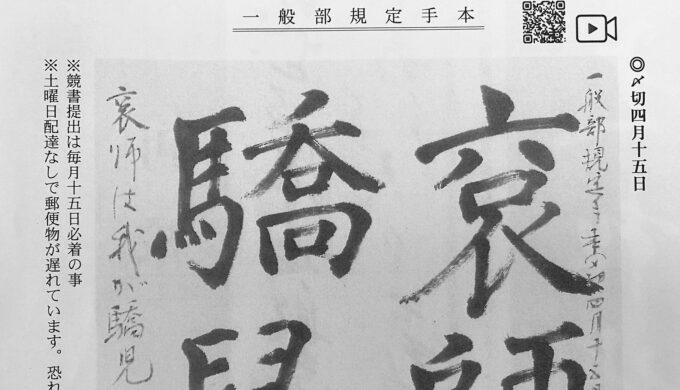 一般部規定手本
◎〆切四月十五日
一般部規定手本〆切四月十五
袞師
驕兒
袞師は我が驕児
※競書提出は毎月十五日必着の事
※土曜日配達なしで郵便物が遅れています。恐れ